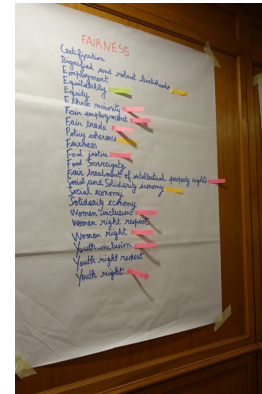 FAIRNESS
Certification
Dignified and robust livelihoods
Employment
Equitability
Equity
Ethnic minority
Fair employment
Fair trade
Policy coherence
Fairness
Food justice
Food Sovereignty
Fair treatment of intellectual property rights
Social and Solidarity economy
Social economy
Solidarity economy
Women inclusion
Women right respect
Women right
Youth inclusion
Youth right respect
Youth right